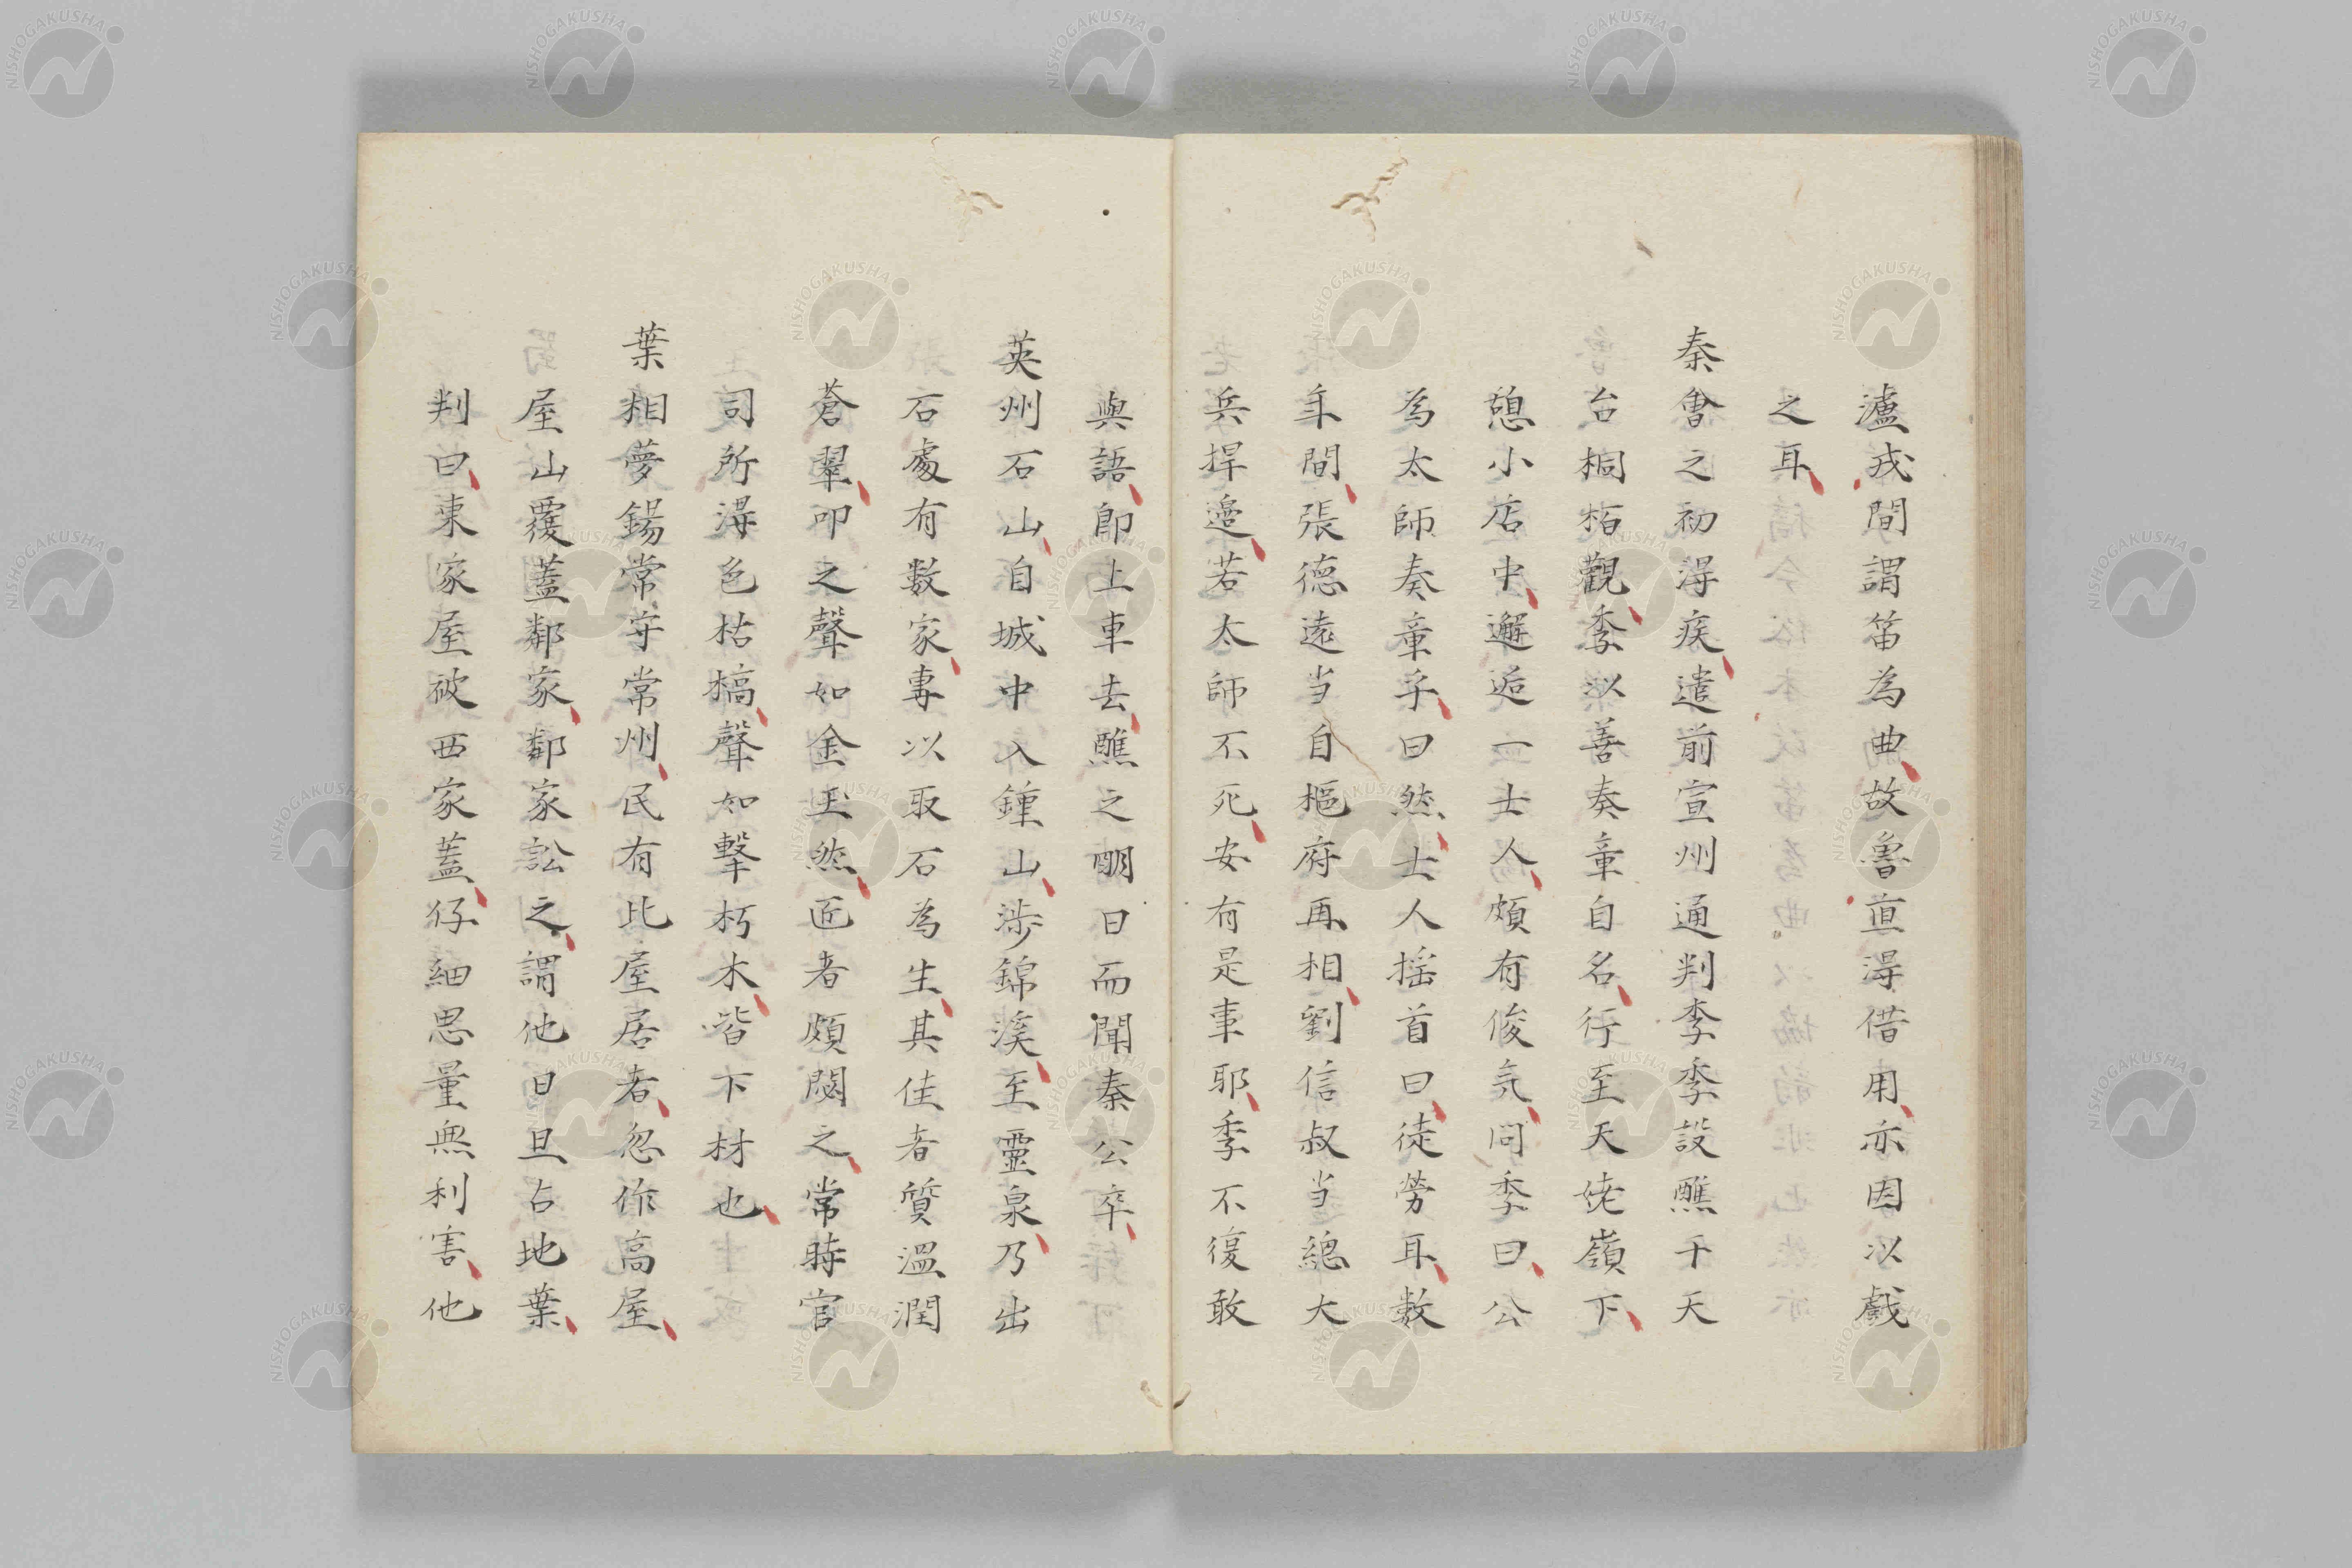 瀘戎間謂笛為曲故魯直淂借用亦因以戲
之耳
秦會之初淂疾遣前宣州通判李季設醮于天
台桐栢觀季以善奏章自名行至天姥嶺下
憩小店中邂逅一士人頗有俊気问季曰公
為太師奏章乎曰然士人揺首曰徒勞耳數
年間張德遠当自樞府再相劉信叔当總大
兵捍邉若太師不死安有是事耶季不復敢
與語即上車去醮之明日而聞秦公卒
英州石山自城中入鍾山涉錦溪至靈泉乃出
石處有数家專以取石為生其佳者質溫潤
蒼翠叩之聲如金玉然匠者頗閟之常時官
司所淂色枯槁聲如擊朽木皆下材也
葉相夢錫常守常州民有比屋居者忽作高屋
屋山覆蓋鄰家鄰家訟之謂他日且占地葉
判曰東家屋被西家蓋仔細思量無利害他
NISHOGAKUSHA